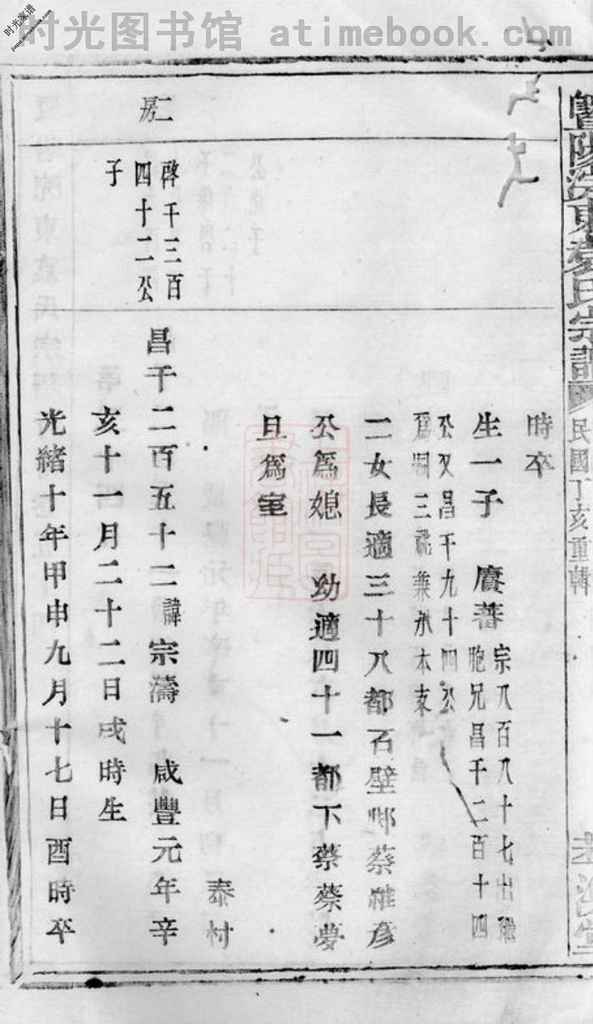 时光图书馆 atimebook.com
民國丁亥重輯
時卒
生一子 賡蕃 宗八百八十七出繼
胞兄昌千二百十四
公又昌千九十四公
爲嗣三祧兼承本支
二女長適三十八都石壁邨蔡維彦
公爲媳 幼適四十一都下蔡蔡夢
旦爲室
泰村
二房
啓千三百
四十二公
子
昌千二百五十二諱宗濤 咸豐元年辛
亥十一月二十二日戌時生
光緒十年甲申九月十七日酉時卒